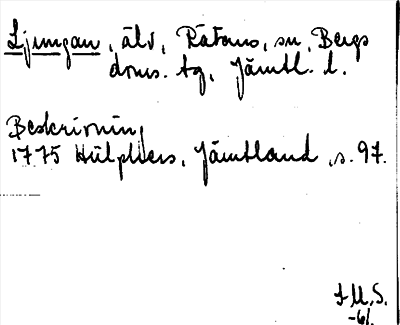 Ljungan, älv, Rätans, sn, Bergs
doms. tg, Jämtl. l.
Beskrivning
1775 Hülphers, Jämtland, s. 97.
I M. S.
-61.